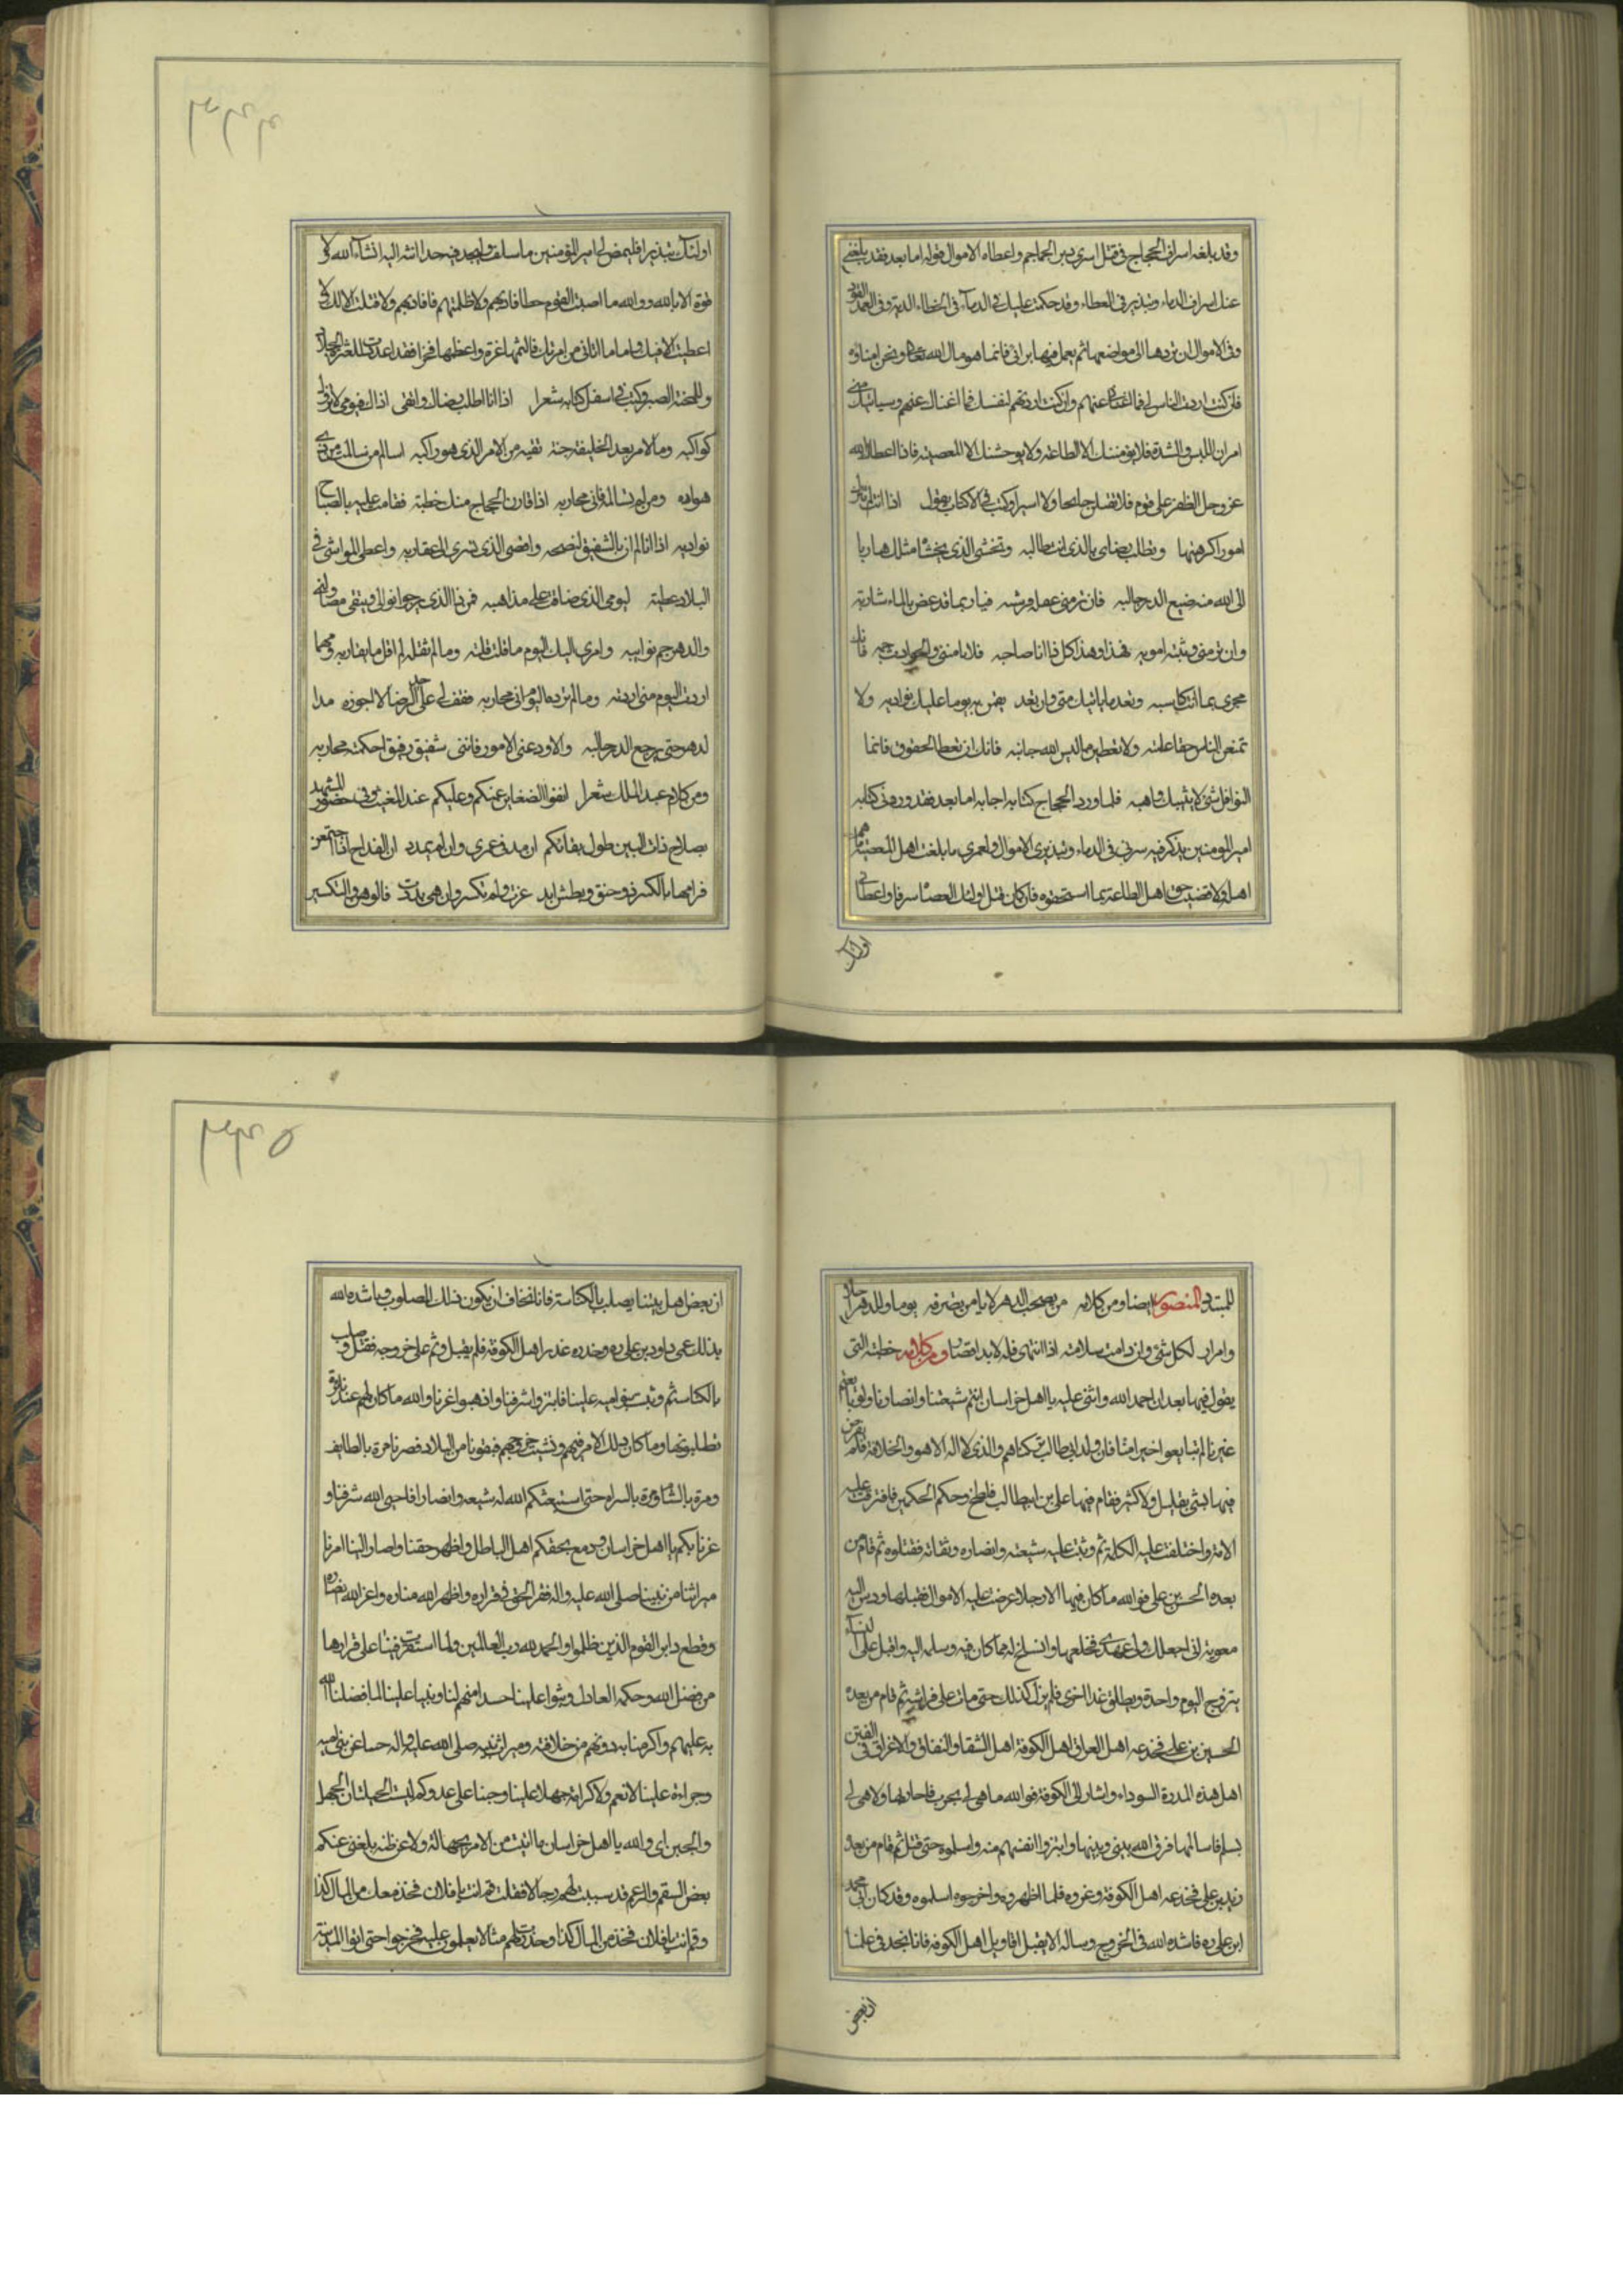 وقد بلغه اسراف الحجاج فى قتل اسرى دير الجماجم واعطاه الاموال قوله اما بعد فقد بلغنى
عنك اسراف الدماء وتبذير فى العطاء وقد حكمت عليك فى الدماء فى الخطاء الدية وفى العمد القود
وفى الاموال ان تردها الى مواضعها ثم يعمل فيها برائى فانما هو مال الله تعالى ونحن امناؤه
فان كنت اردت الناس لى فما اغناك عنهم وان كنت اردتهم لنفسك فما اغناك عنهم وسياتيك منى
امران اللين والشدة فلا يؤمننك الا الطاعة ولا يوحشنك الا المعصية فاذا اعطاك الله
عز وجل الظفر على قوم فلا تقتلن جانحا ولا اسيرا وكتب فى الكتاب يقول اذا انت لم تترك
امورا كرهتها وتطلب رضاى بالذى انت طالبه وتخشى الذى يخشاه مثلك هاربا
الى الله منه ضيع الدر حالبه فان تر منى غفلة قرشية فيا ربما قد غص بالماء شاربه
وان تر منى وثبة اموية فهذا وهذا كل ذا انا صاحبه فلا تامننى والحوادث جمة فانك
مجزى بما انت كاسبه ولا تعد ما ياتيك منى وان تعد يقم به يوما عليك نوادبه ولا
تمنعن الناس حقا علمته ولا تعطين ما ليس لله جانبه فانك ان تعطا الحقوق فانما
النوافل شئ لا يثيبك واهبه فلما ورد الحجاج كتابه اجابه اما بعد فقد ورد فى كتابه
امير المومنين يذكر فيه سرفى فى الدماء وتبذيرى الاموال ولعمرى ما بلغت اهل المعصية ما هم
اهله ولا قضيت حق اهل الطاعة بما استحقوه فان كان قتل اولئك العصاة سرفا واعطائى
اولئك
اولئك تبذيرا فليمض لى امير المؤمنين ما سلف وليحد فيه حدا انته اليه انشاء الله ولا
قوة الا بالله ووالله ما اصبت القوم خطا فاديهم ولا ظلمتهم فافاديهم ولا قتلت الا لك ولا
اعطيت الا فيك واما ما اتانى من امريك فالينهما غرة واعظمها فخرا فقد اعددت للغرة الجلاد
وللمحنة الصبر وكتب فى اسفل كتابه شعرا اذا انا لم اطلب رضاك واتقى اذاك فيومى لا تزول
كواكبه وما لامرء بعد الخليفة جنة تقيه من الامر الذى هو راكبه اسالم من سالمت من ذى
هواده ومن لم تسالمه فانى محاربه اذا قارف الحجاج منك خطية فقامت عليه بالصباح
نوادبه اذا انا لم ادن بالشفيق لنصحه واقصى الذى تسرى الى عقاربه واعطى المواشى فى
البلاد عطية ليومى الذى ضاقت على مذاهبه فمن ذا الذى يرجوا نوالى ويتقى مصاولتى
والدهر جم نوائبه وامرى اليك اليوم ما قلت قلته وما لم تقله لم اقل ما يقاربه ومهما
اردت اليوم منى اردته وما لم ترده اليوم انى مجانبه فقف لى على حد الرضا لا اجوزه مدا
لدهر حتى يرجع الدر حالبه والا ودعنى الامور فاننى شفيق رفيق احكمته تجاربه
ومن كلام عبد الملك شعرا انفوا الضغاين عنكم وعليكم عند المغيب وفى حضور المشهد
بصلاح ذات البين طول بقائكم ان مد فى عمرى وان لم يمدد ان القداح اذا اجتمعن
فرامها بالكسر ذو حنق وبطش ايد عزت ولم تكسر وان هى بددت فالوهن والتكسير
للمتبدد المنصور ايضا ومن كلامه من يصحب الدهر لا يامن تصرفه يوما وللدهر احلاء
وامرار لكل شئ وان دامت سلامته اذا انتهى فله لا بد اقصار ومن كلامه خطبته التى
يقول فيها بعد ان احمد الله واثنى عليه يا اهل خراسان انتم شيعتنا وانصارنا ولو بايعتم
غيرنا لم تبايعوا خيرا منا فان ولد ابى طالب تركناهم والذى لا اله الا هو والخلافة فلم نعرض
فيها بشئ بقليل ولا كثير فقام فيها على بن ابيطالب فلطخ وحكم الحكمين فافترقت عليه
الامة واختلفت عليه الكلمة ثم وثبت عليه شيعته وانصاره وثقاته فقتلوه ثم قام من
بعده الحسن بن على فو الله ما كان فيها الا رجلا عرضت عليه الاموال فقبلها ودس اليه
معوية انى اجعلك ولى عهدى فخلعها وانسلخ له مما كان فيه وسلمه اليه واقبل على النساء
يتزوج اليوم واحدة ويطلق غدا اخرى فلم يزل كذلك حتى مات على فراشه ثم قام من بعده
الحسين بن على فخدعه اهل العراق اهل الكوفة اهل الشقاق والنفاق والاغراق فى الفتن
اهل هذه المدرة السوداء واشار الى الكوفة فو الله ما هى لى بحرب فاحاربها ولا هى لى
بسلم فاسالمها فرق الله بينى وبينها وابتزوا انفسهم منه واسلموه حتى قتل ثم قام من بعده
زيد بن على فخدعه اهل الكوفة وغروه فلما اظهروه واخرجوه اسلموه وقد كان ابى محمد
ابن على ره فاشده الله فى الخروج وساله الا يقبل اقاويل اهل الكوفة فانا نجد فى علمنا
ان بعض
ان بعض اهل بيتنا يصلب بالكناسة فانا نخاف ان يكون ذلك المصلوب وناشده الله
بذلك عمى داود بن على ره وحذره غدر اهل الكوفة فلم يقبل وتم على خروجه فقتل وصلب
بالكناسة ثم وثب بنو امية علينا فابتزوا شرفنا واذهبوا عزنا والله ما كان لهم عندنا ترة
تطلبونها وما كان ذلك الا مر فيهم وتشبث خروجهم فبقونا من البلاد فصرنا مرة بالطايف
ومرة بالشام ومرة بالسراه حتى استبعثكم الله له شيعه وانصارا فاحيى الله شرفنا و
عزنا بكم يا اهل خراسان ودمغ بحقكم اهل الباطل واظهر حقنا واصار الينا امرنا
ميراثنا من نبينا صلى الله عليه واله فقر الحق فى قراره واظهر الله مناره واعز الله انصاره
وقطع دابر القوم الذين ظلموا والحمد لله رب العالمين ولما استقرت فينا على قرارها
من فضل الله وحكمه العادل وثبوا علينا حسدا منهم لنا وبغيا علينا لما فضلنا الله
به عليهم واكرمنا به دونهم من خلافته وميراث نبيه صلى الله عليه واله حسا عن بنى امية
وجراءة علينا لا نعم ولا كرامة جهلا علينا وجبنا على عدوكم لبئست الخلتان الجهل
والجبن اى والله يا اهل خراسان ما اتيت من الامر بجهالة ولا عن ظنه بلغنى عنكم
بعض السقم والزعم قد سببت لهم رجالا فقلت قم انت يا فلان فخذ معك من المال كذا
وقم انت يا فلان فخذ من المال كذا وحذوت لهم مثالا يعملون عليه فخرجوا حتى اتوا المدينة